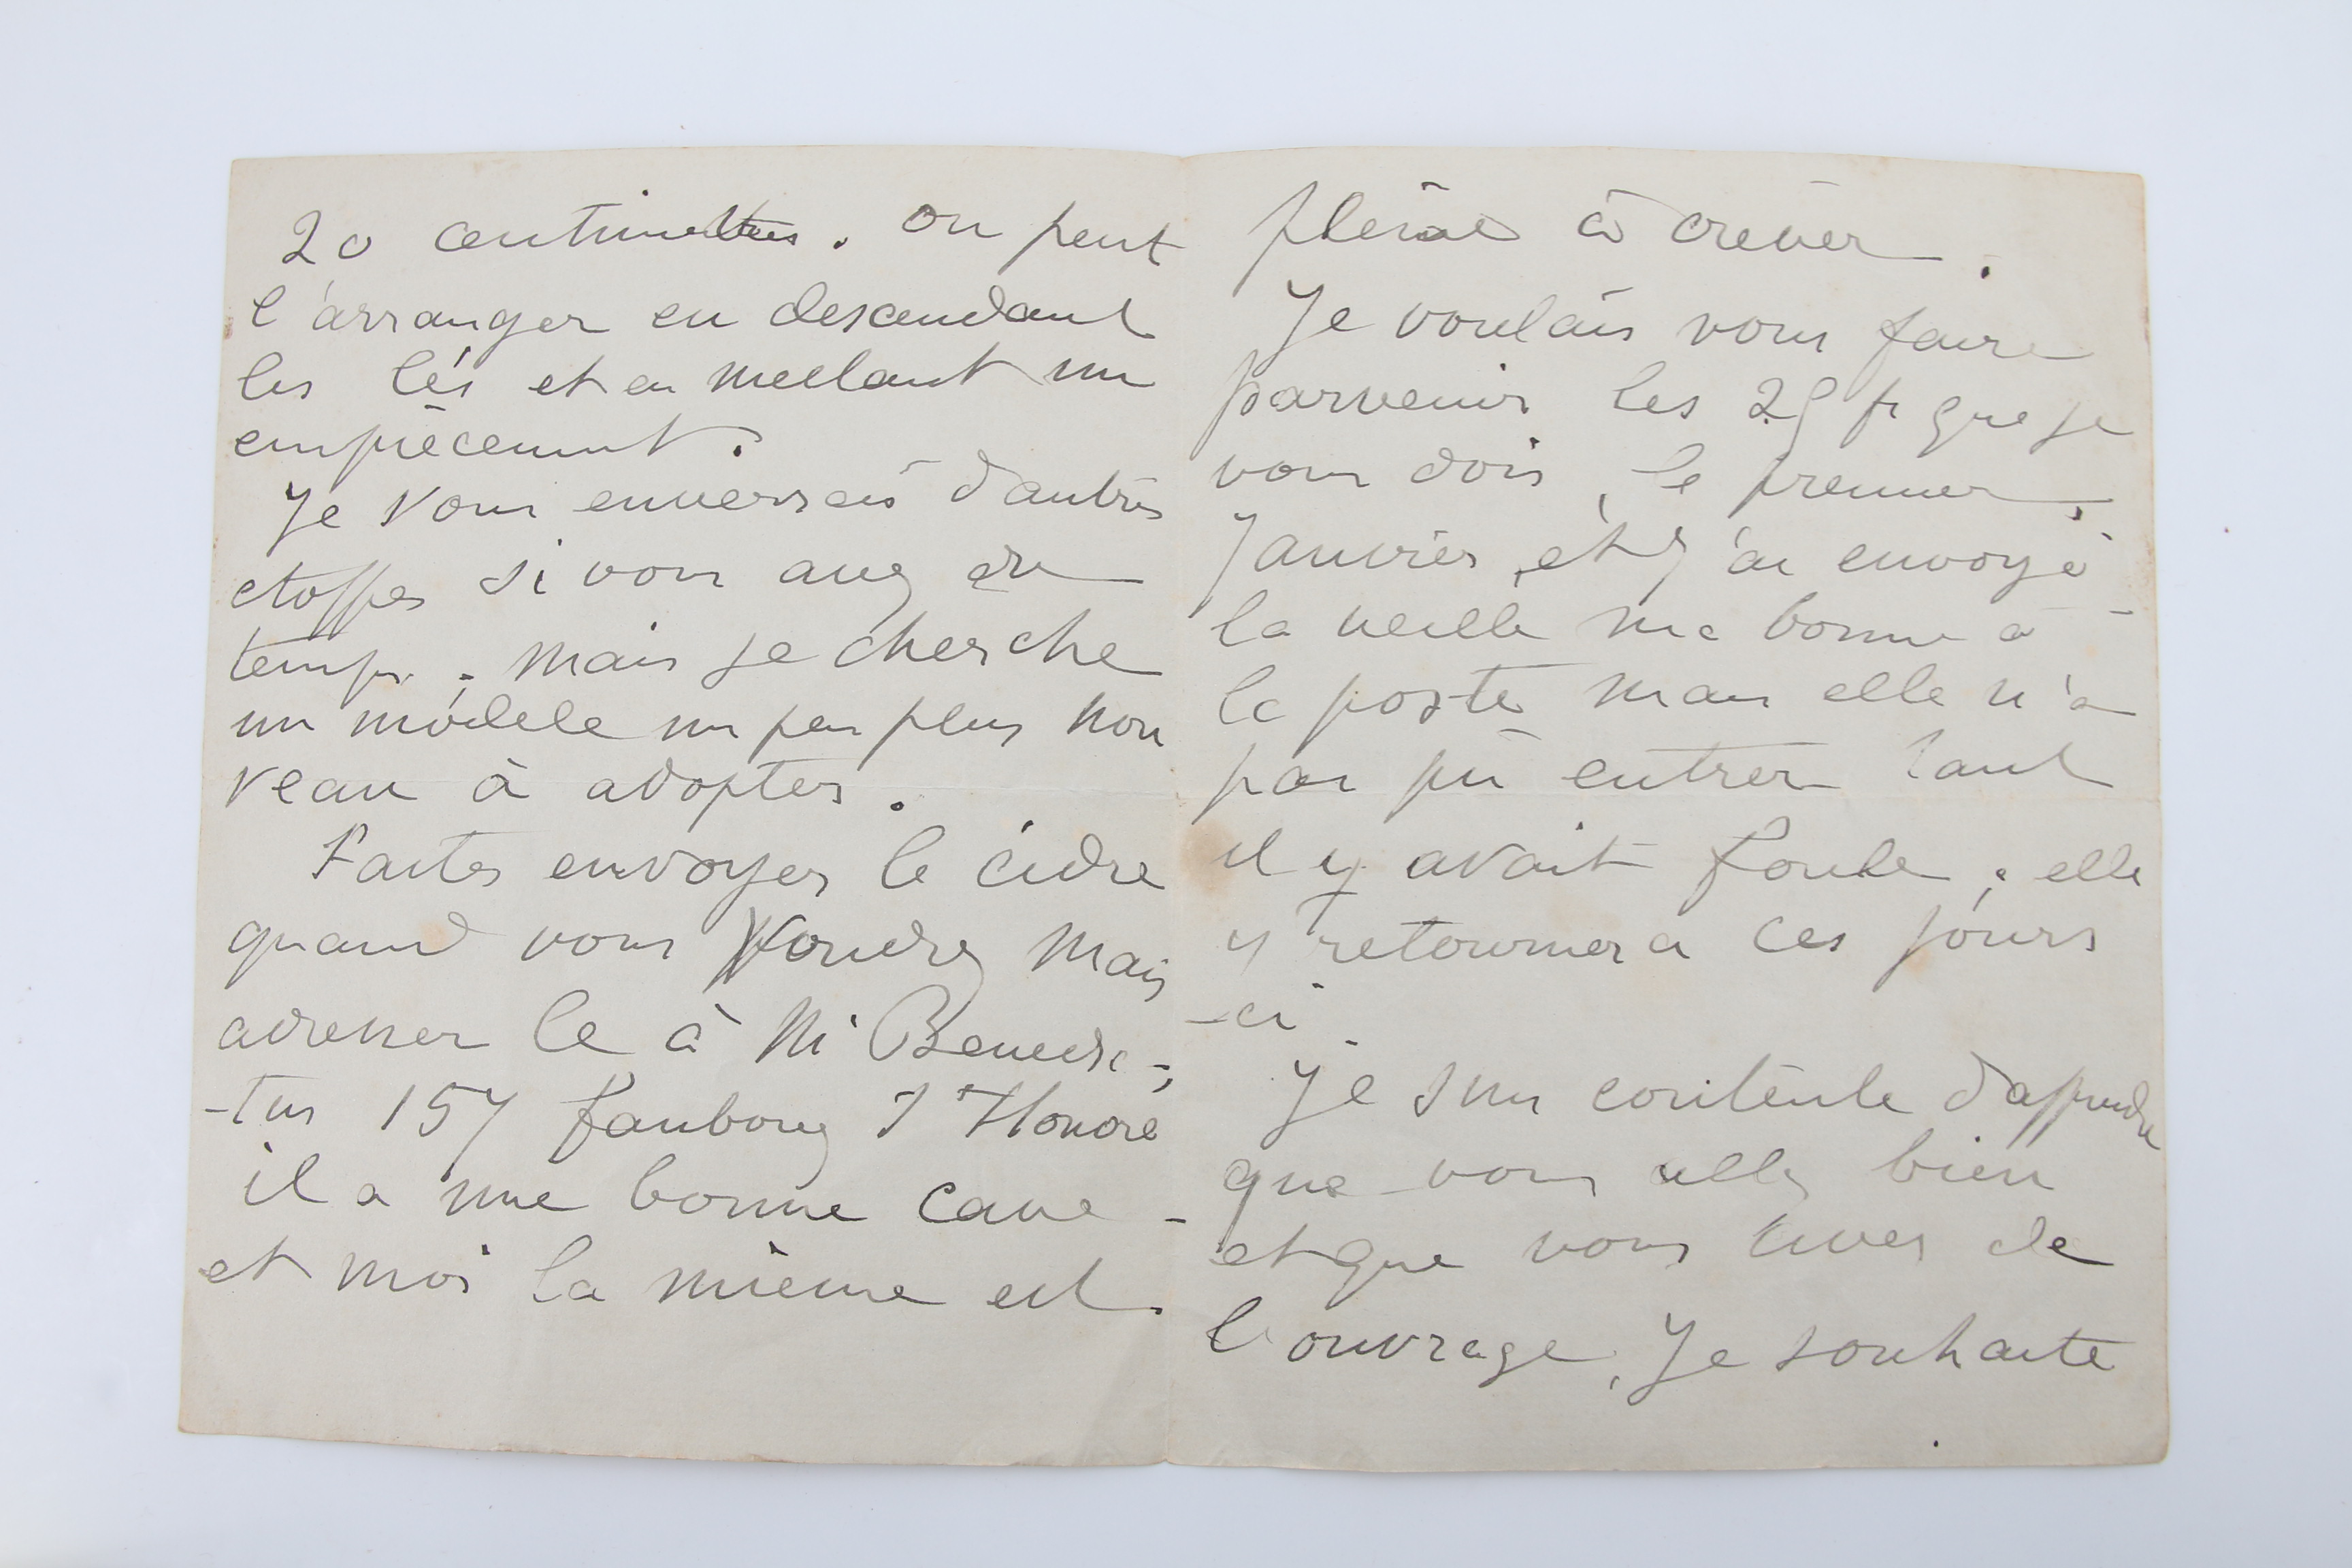 20 centimetres. on peut
l'arranger en descendant
les lés et en mettant un
empiècement.
Je vous enverrais d'autres
etoffes si vous avez du
temps. mais je cherche
un modele un peu plus nou
veau à adopter.
Faites envoyer le cidre
quand vous voudrez mais
adresser le à Mr Benedic-
-tus 157 faubourg St Honoré
il a une bonne cave -
et moi la mienne est
pleine à crever.
Je voulais vous faire
parvenir les 25 fr que je
vous dois, le premier
Janvier, et j'ai envoyé
la veille ma bonne à -
la poste mais elle n'a
pas pu entrer tant
il y avait foule; elle
y retournera ces jours
-ci
Je suis contente d'apprendre
que vous allez bien
et que vous avez de
l'ouvrage, Je souhaite